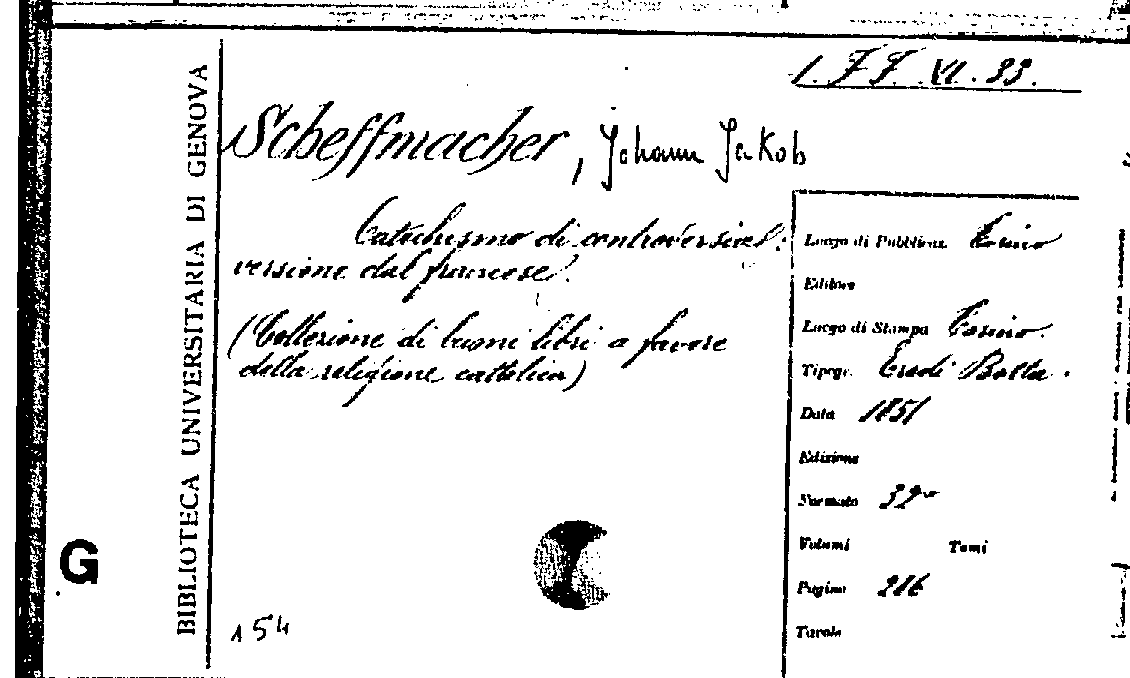 BIBLIOTECA UNIVERSITARIA DI GENOVA
G
1. FF. VI. 33.
Scheffmacher, Johann Jakob
Catechismo di controversia:
versione dal francese.
(Collezione di buoni libri a favore
della religione cattolica)
154
Luogo di Pubblicaz. Torino
Editore
Luogo di Stampa Torino.
Tipogr. Eredi Botta.
Data 1851
Edizione
Formato 32°
Volumi Tomi
Pagine 216
Tavole